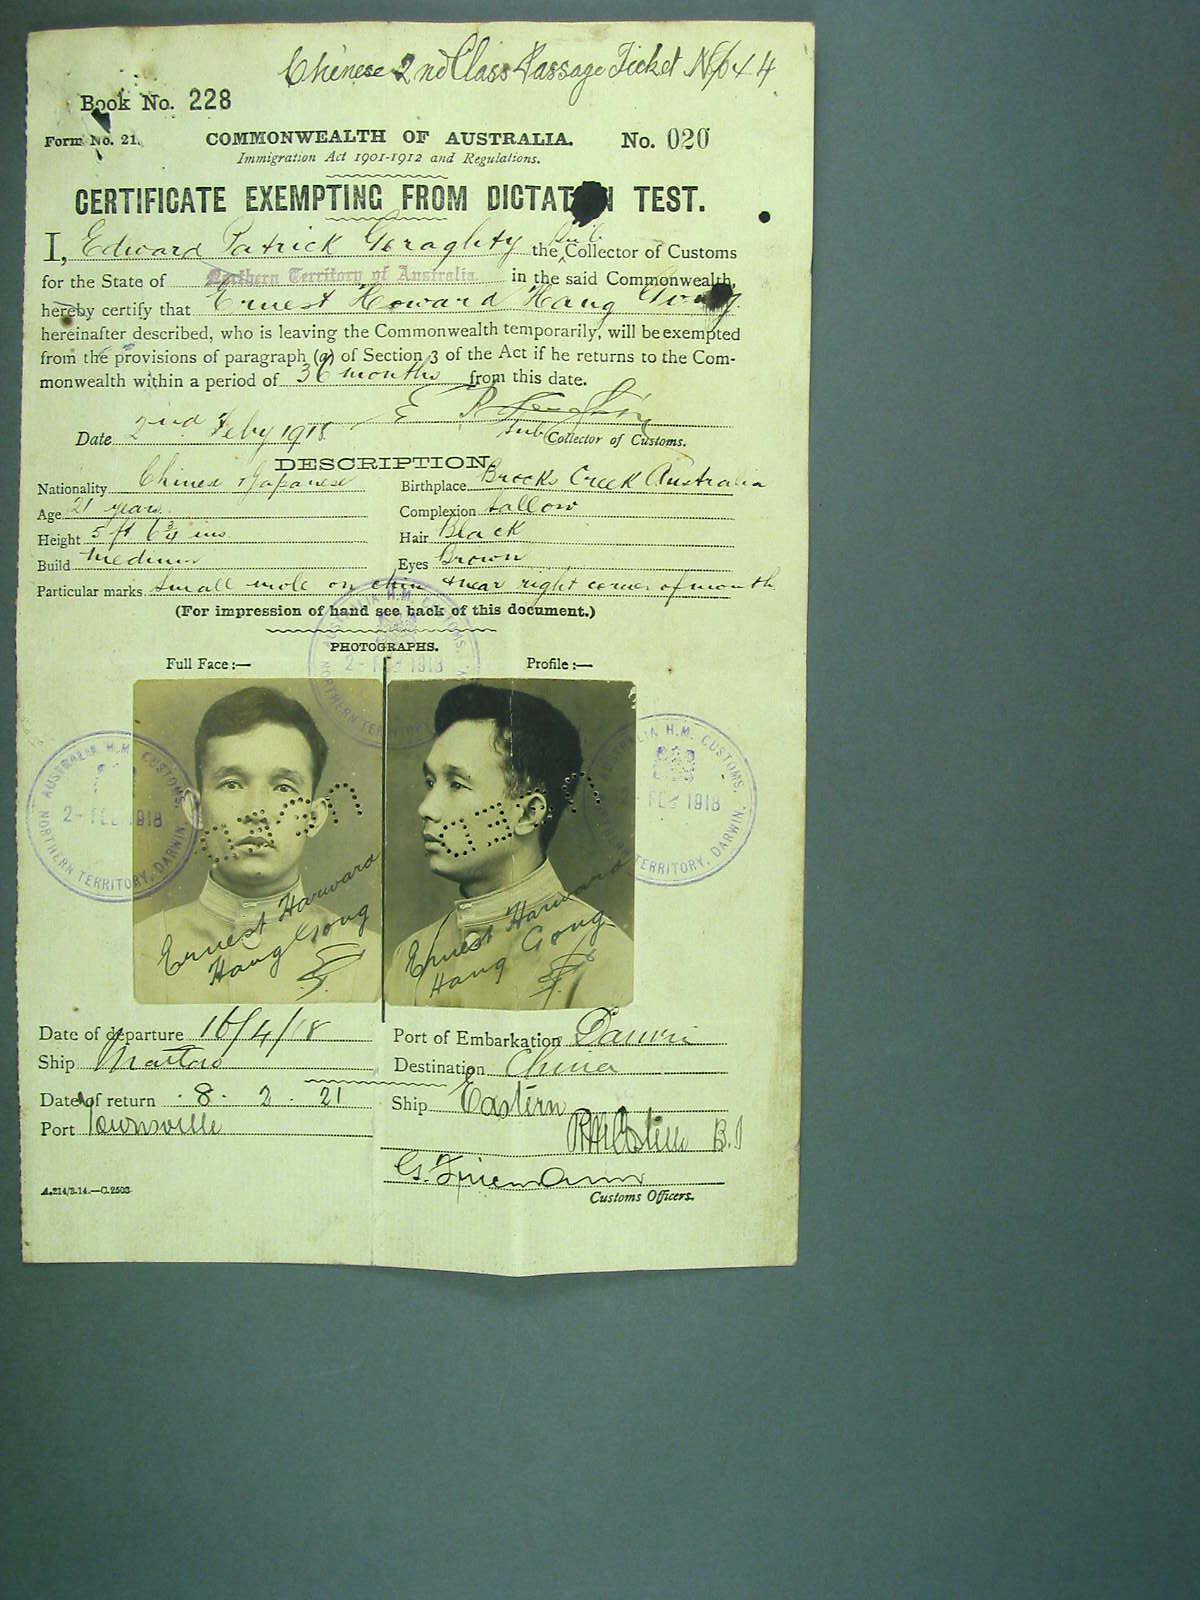 Chinese 2nd Class Passage Ticket No 44
Book No. 228
Form No. 21. COMMONWEALTH OF AUSTRALIA. No. 020
Immigration Act 1901-1912 and Regulations.
CERTIFICATE EXEMPTING FROM DICTATION TEST.
I, Edward Patrick Geraghty the Sub Collector of Customs
for the State of Northern Territory of Australia in the said Commonwealth,
hereby certify that Ernest Howard Hang Gong
hereinafter described, who is leaving the Commonwealth temporarily, will be exempted
from the provisions of paragraph (a) of Section 3 of the Act if he returns to the Com-
monwealth within a period of 36 months from this date.
Date 2nd Feby 1918 E P Geraghty
Sub Collector of Customs.
DESCRIPTION.
Nationality Chinese Japanese Birthplace Brocks Creek Australia
Age 21 years Complexion Sallow
Height 5 ft 6 3/4 ins Hair Black
Build Medium Eyes Brown
Particular marks small mole on chin & near right corner of mouth
(For impression of hand see back of this document.)
PHOTOGRAPHS.
Full Face :— Profile :—
AUSTRALIA H.M. CUSTOMS.
2 - FEB 1918
NORTHERN TERRITORY, DARWIN.
AUSTRALIA H.M. CUSTOMS.
2 - FEB 1918
NORTHERN TERRITORY, DARWIN.
AUSTRALIA H.M. CUSTOMS.
2 - FEB 1918
TERRITORY, DARWIN.
Ernest Harward
Hang Gong
Ernest Harward
Hang Gong
Date of departure 16/4/18 Port of Embarkation Darwin
Ship Mataro Destination China
Date of return 8. 2. 21 Ship Eastern
Port Townsville
B.I
G.
Customs Officers.
A.214/3.14.—C.2503